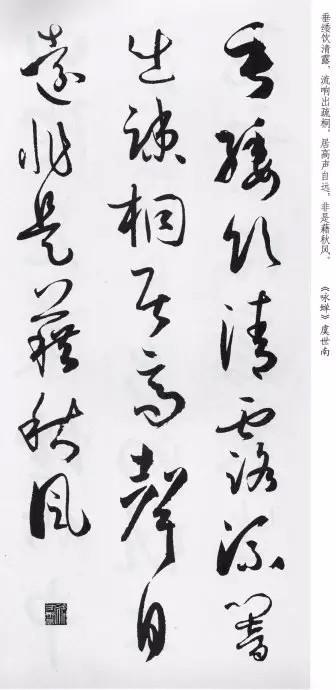 垂緌饮清露，流响出疏桐。居高声自远，非是藉秋风。
《咏蝉》虞世南
垂緌飲清露流響
出疎桐居高聲自
遠非是藉秋風